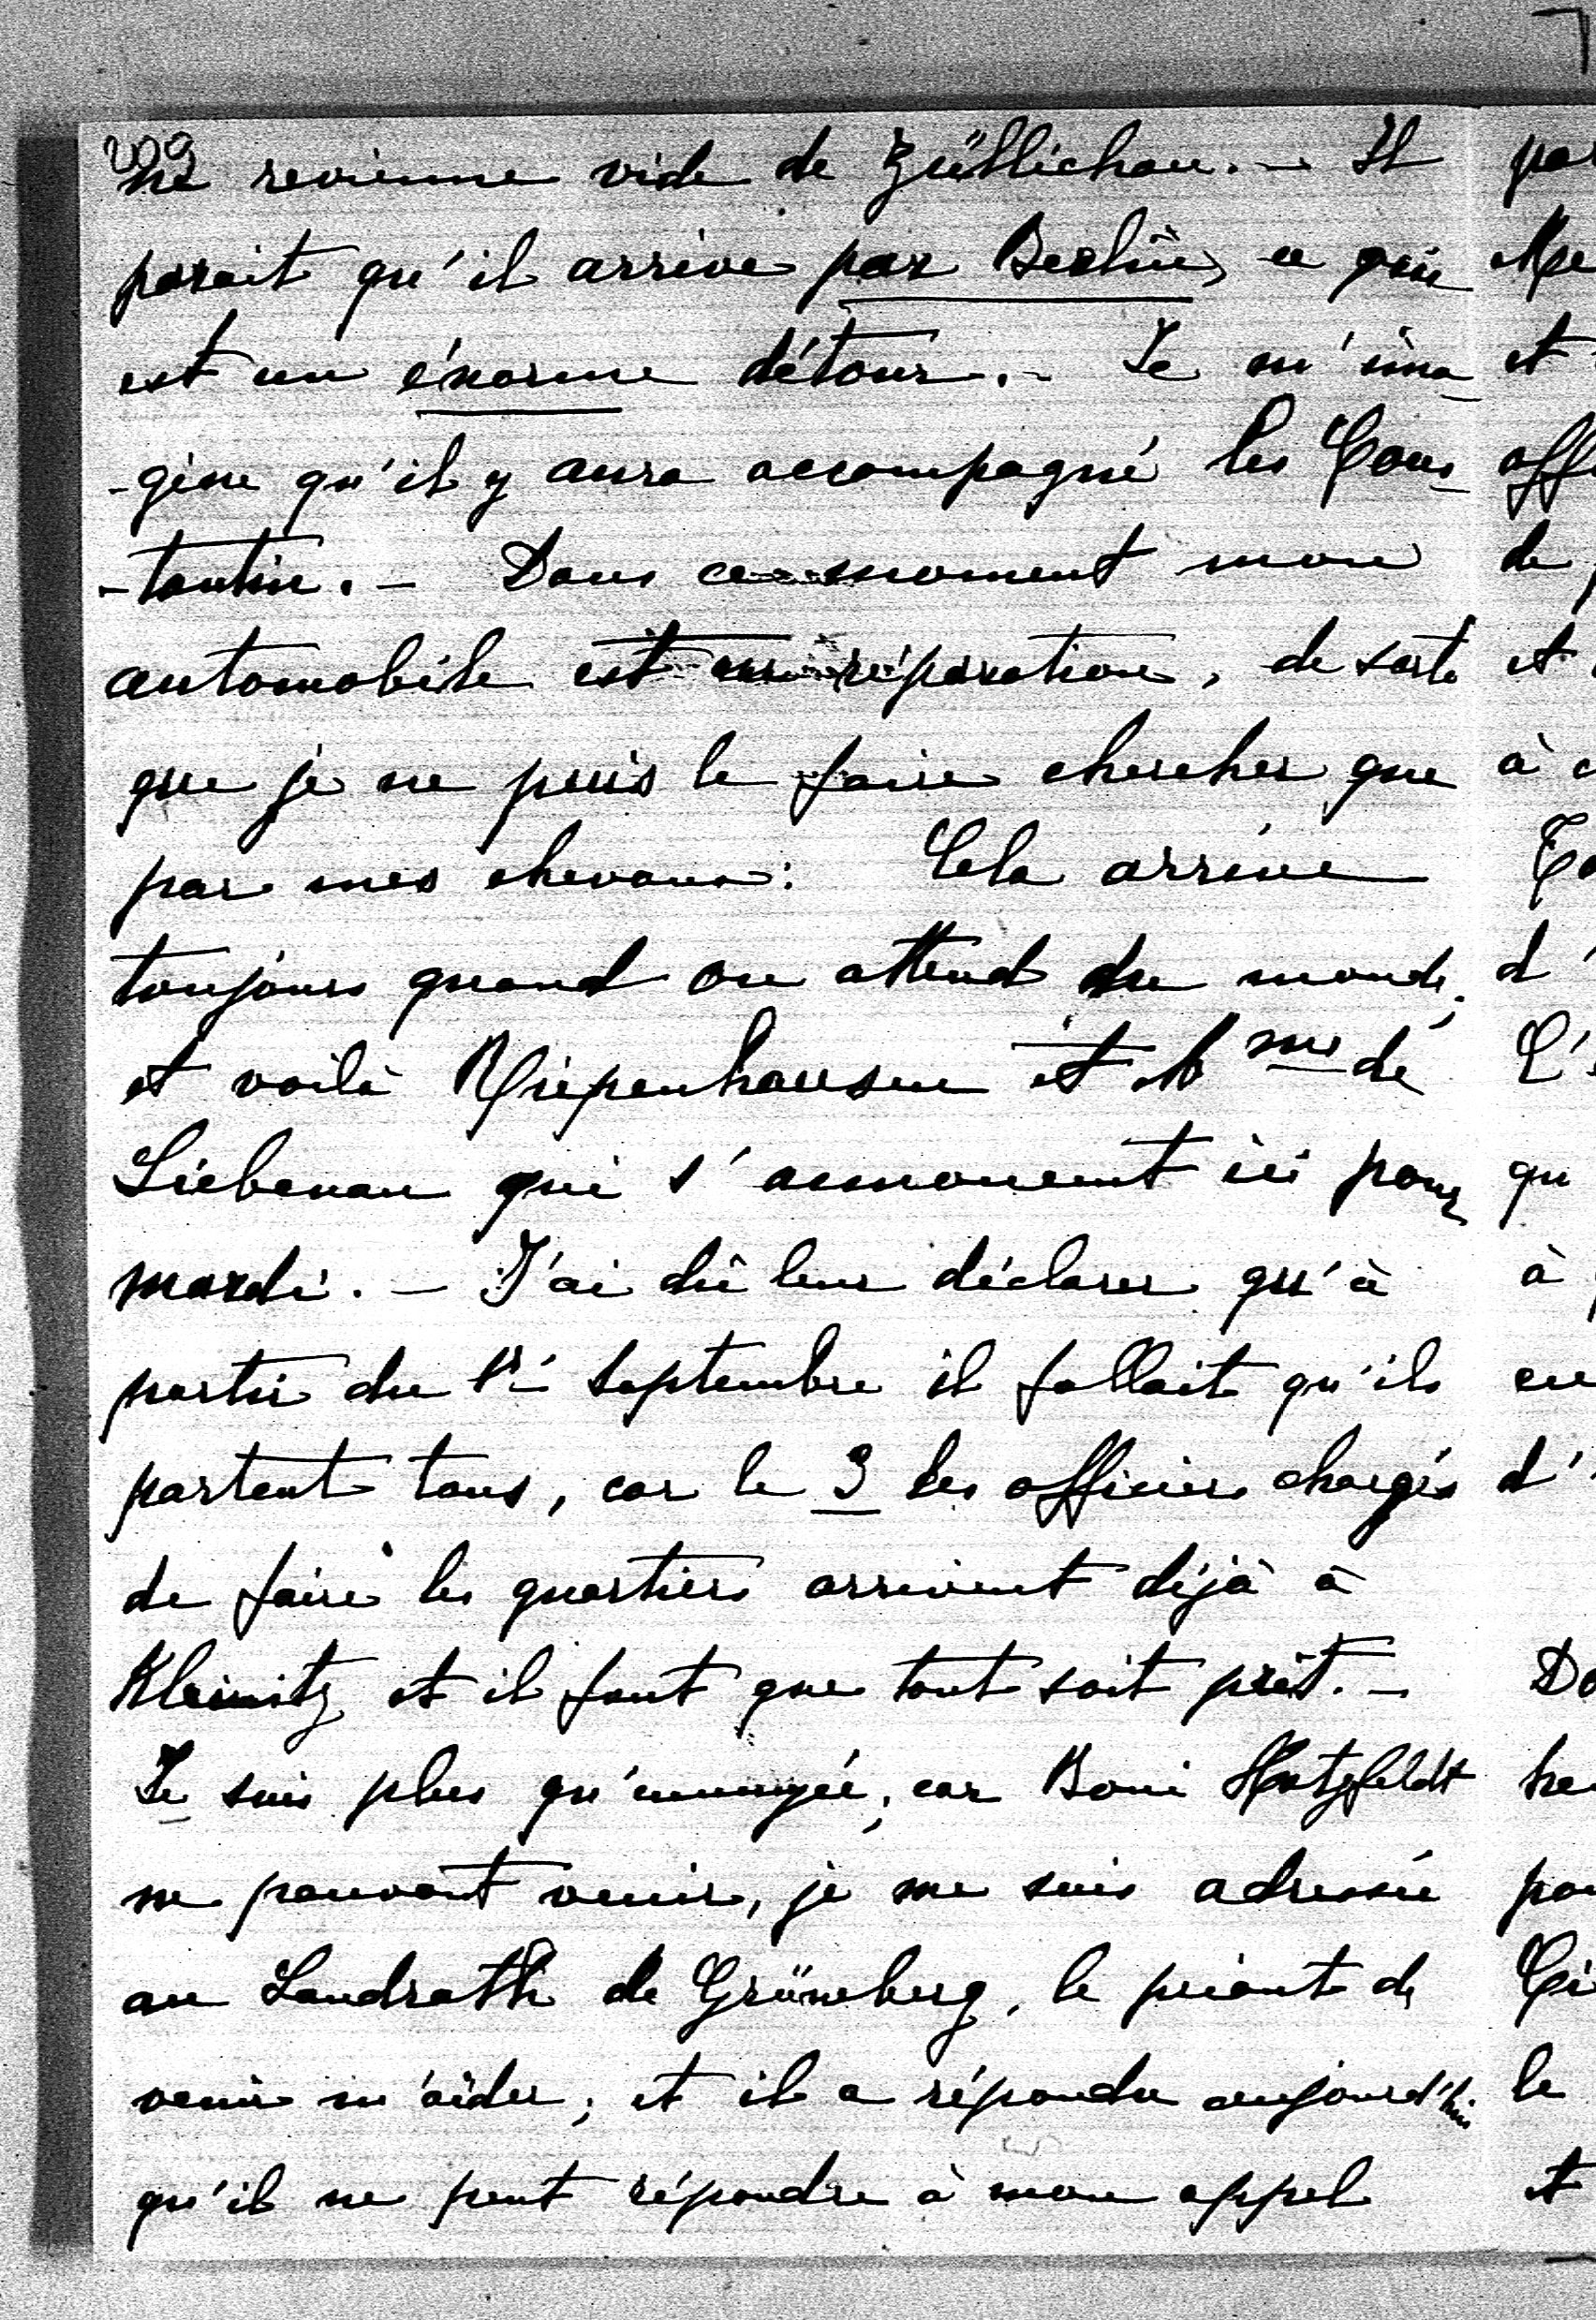 209
ne revienne vide de Züllichau. – Il
parait qu'il arrive par Berlin, ce qui
est un énorme détour. – Je m'ima-
-gine qu'il y aura accompagné les Cons-
-tantin. – Dans ce moment mon
automobile est en réparation, de sorte
que je ne puis le faire chercher que
par mes chevaux: Cela arrive
toujours quand on attend du monde;
et voilà Kriepenhausen et Mme de
Liebenau qui s'annoncent ici pour
mardi. – J'ai dû leur déclarer qu'à
partir du 1er Septembre il fallait qu'ils
partent tous, car le 3 les officiers chargés
de faire les quartiers arrivent déjà à
Kleinitz et il faut que tout soit prêt. –
Je suis plus qu'ennuyée, car Boni Hatzfeldt
ne pouvant venir, je me suis adressée
au Landrath de Grüneberg, le priant de
venir m'aider; et il a répondu aujourd'hui
qu'il ne peut répondre à mon appel